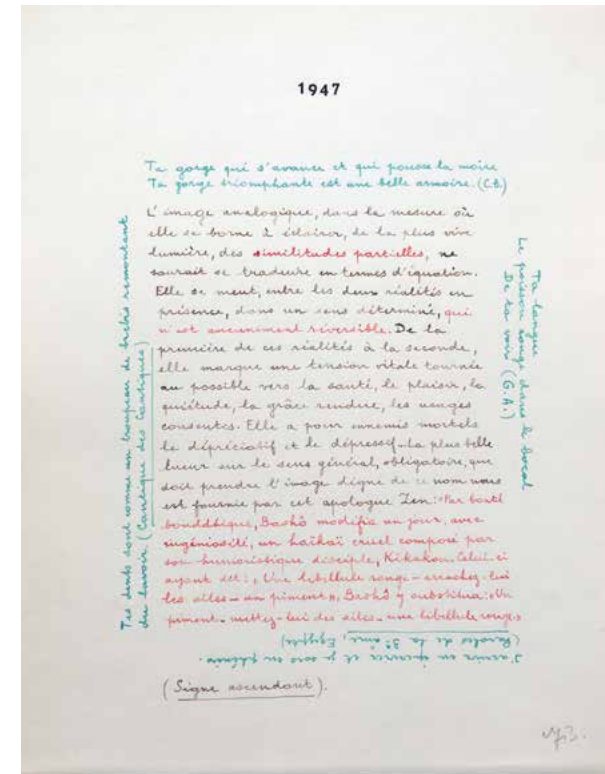 1947
Ta gorge qui s'avance et qui pousse la moire
Ta gorge triomphante est une belle armoire. (C.B.)
L'image analogique, dans la mesure où
elle se borne à éclairer, de la plus vive
lumière, des similitudes partielles, ne
saurait se traduire en termes d'équation.
Elle se meut, entre les deux réalités en
présence, dans un sens déterminé, qui
n'est aucunement réversible. De la
première de ces réalités à la seconde,
elle marque une tension vitale tournée
au possible vers la santé, le plaisir, la
quiétude, la grâce rendue, les usages
consentis. Elle a pour ennemis mortels
le dépréciatif et le dépressif. La plus belle
lueur sur le sens général, obligatoire, que
doit prendre l'image digne de ce nom nous
est fournie par cet apologue Zen: «Par bonté
bouddhique, Bashô modifia un jour, avec
ingéniosité, un haïkaï cruel composé par
son humoristique disciple, Kikakou. Celui-ci
ayant dit: «Une libellule rouge - arrachez-lui
les ailes - un piment», Bashô y substitua: «Un
piment - mettez-lui des ailes - une libellule rouge.»
Ta langue
Le poisson rouge dans le bocal
De ta voix (G.A.)
J'arrive en épervier et je sors en phénix.
(Paroles de la 3e âme, Egypte)
Tes dents sont comme un troupeau de brebis remontant
du lavoir (Cantique des Cantiques)
(Signe ascendant).
AB.